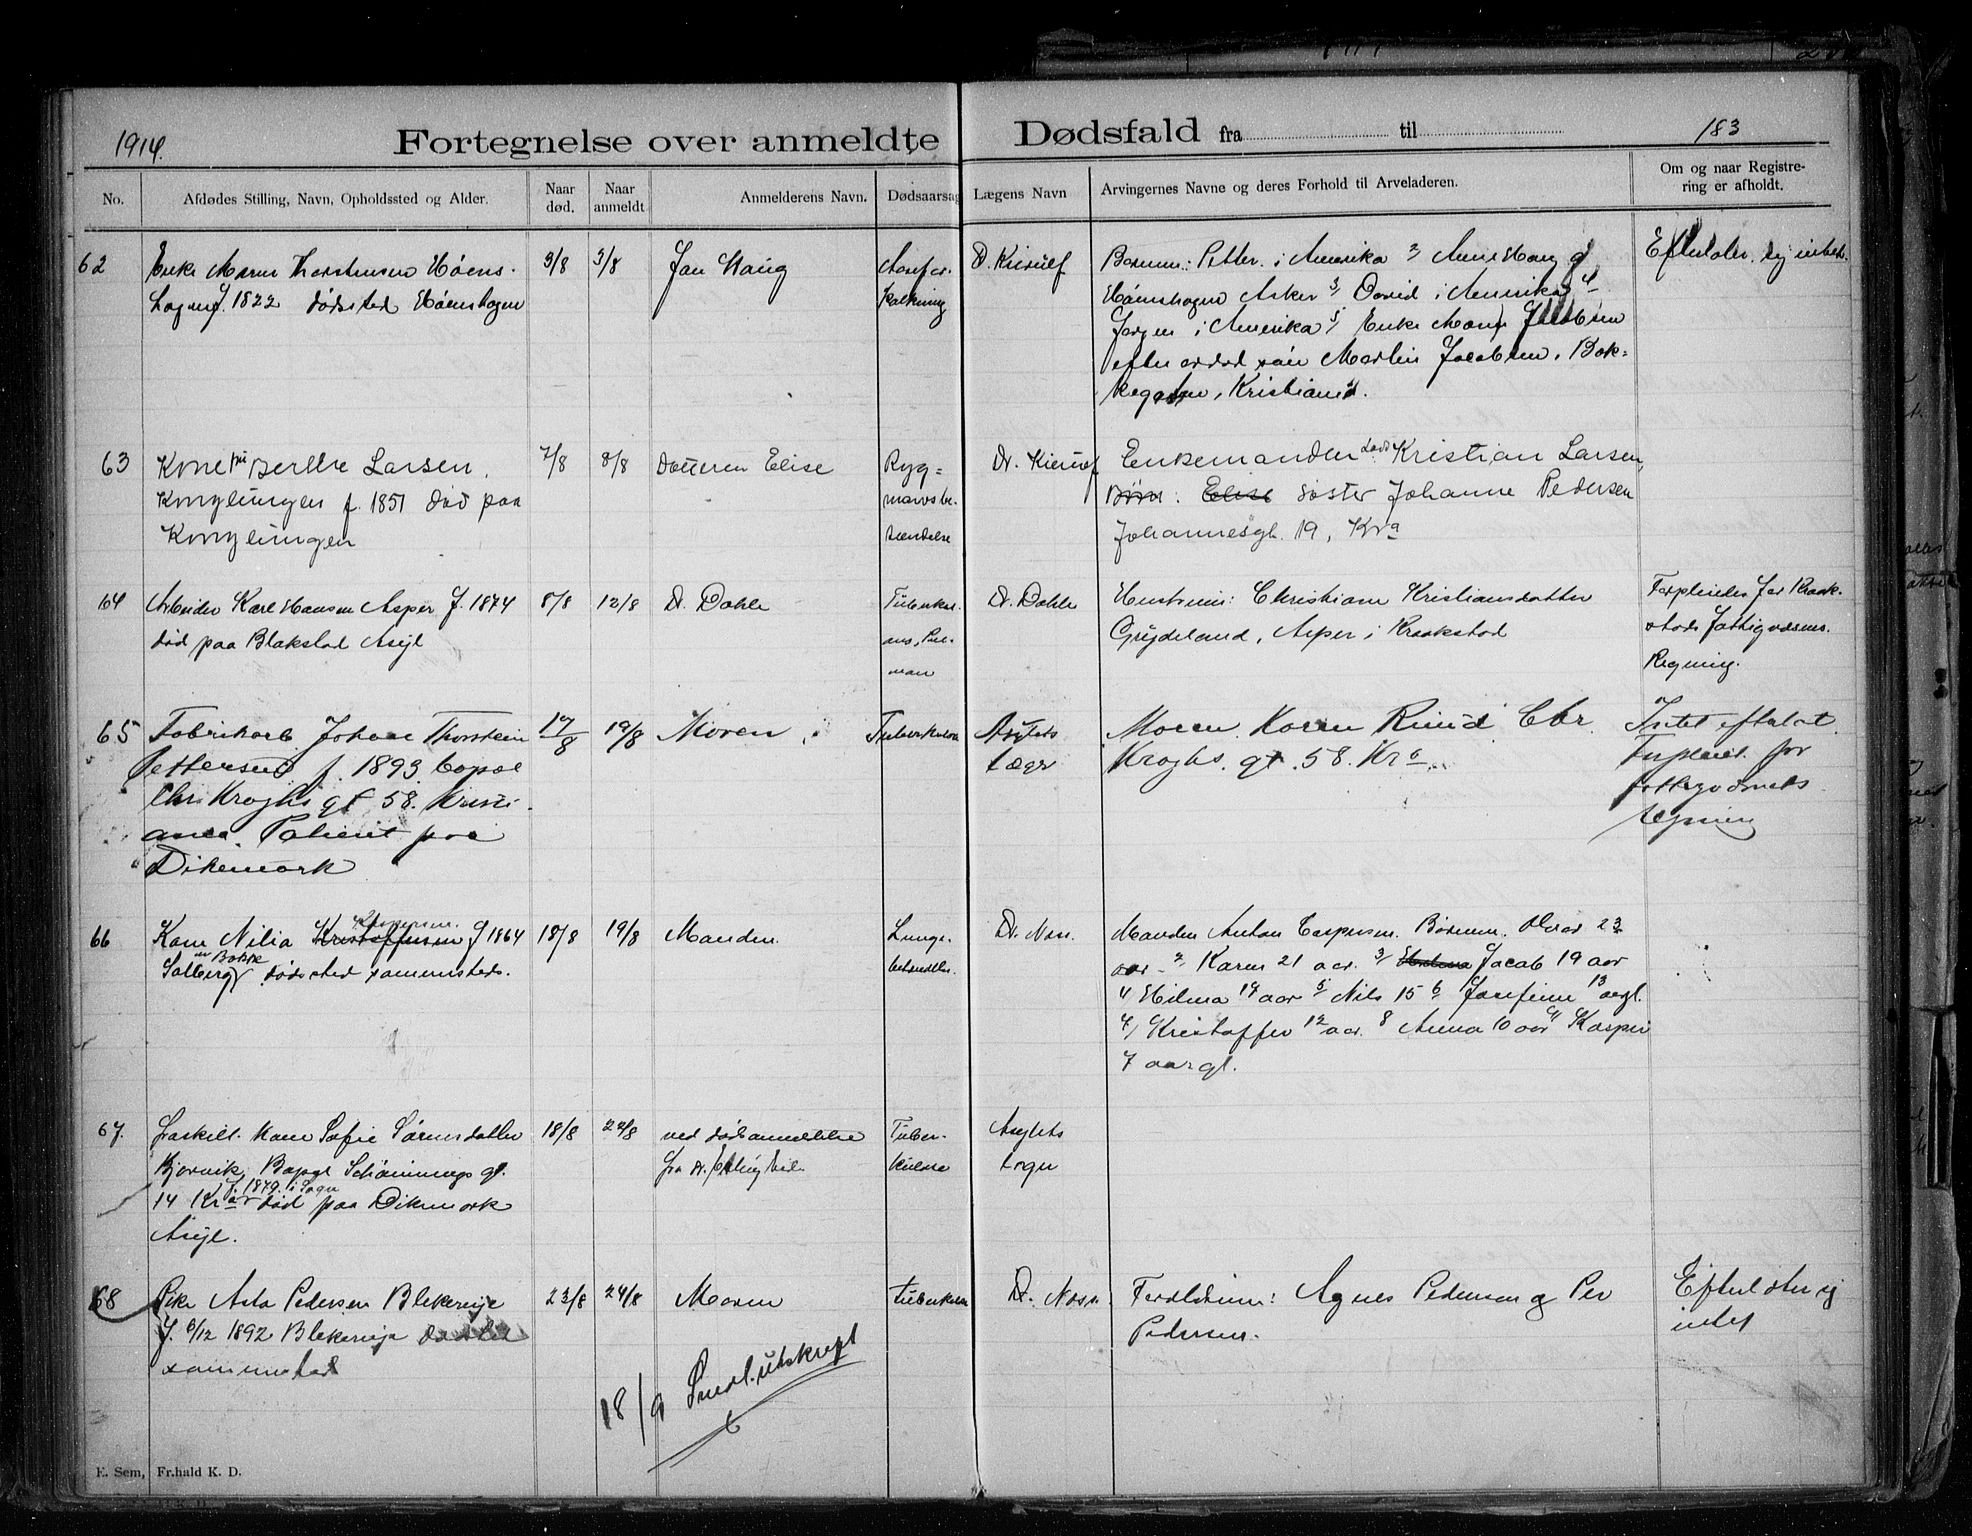 1914.
Fortegnelse over anmeldte Dødsfald fra til
183
No.
Afdødes Stilling, Navn, Opholdssted og Alder.
Naar død.
Naar anmeldt
Anmelderens Navn.
Dødsaarsag
Lægens Navn
Arvingernes Navne og deres Forhold til Arveladeren.
Om og naar Registre-
ring er afholdt.
62
Enke Maren Thorstensen Høens-
hagen f. 1822 dødsted Hønshagen
3/8
3/8
Jan Haug
Aarefor-
kalkning
D. Kierulf
Børnene: Petter i Amerika 2 Anne Haug
Hønshagen Asker 3/ David i Amerika 4
Jørgen i Amerika 5/ Enke Maren Jacobsen
efter søn Martin Jacobsen, Bok-
kegaten, Kristiania.
Efterlater ej intet.
63
Kone Berthe Larsen,
Konglungen f. 1851 død paa
Konglungen
7/8
8/8
Datteren Elise
Ryg-
marvsbe-
tændelse
Dr. Kierulf
Enkemanden Kristian Larsen,
Børn: Elise søster Johanne Pedersen
Johannesgt. 19, Kra
64
Arbeider Karl Hansen Asper f. 1874
død paa Blakstad Asyl
8/8
12/8
Dr. Dahle
Tuberkul-
Pul-
mon
Dr. Dahle
Hustruen: Christiane Kristiansdatter
Grydeland, Asper i Kraakstad
Forpleiedes for Kraak-
stads fattigvæsens
Regning.
65
Fabrikarb. Johan Thorstein
Pettersen f. 1893 bopæl
Chr. Kroghs gt 58. Kristi-
ania. Patient paa
Dikemark
17/8
19/8
Moren
Tuberkulose
Asylets
Læge
Moren Karen Ruud Chr
Kroghs. gt. 58. Kra.
Intet efterlat.
Forpleiet for
fattigvæsnets
regning
66
Kone Nilia Kristoffersen Kaspersen f 1864
Solberg Bakke dødsted sammesteds.
18/8
19/8
Manden
Lunge-
betændelse
Dr. Næss.
Manden Anton Caspersen. Børnene. Olava 23
aar - 2 Karen 21 aar. 3/ Jacob 19 aar
4 Hilma 17 aar 5 Nils 15 6 Josefine 13 aargl.
7/ Kristoffer 12 aar. 8 Anna 10 aar 9 Kasper
7 aar gl.
67.
fraskilt Kone Sofie Sørensdatter
Bjørvik, Bopæl Schønnings gt.
14 Kra f. 1879 i Sogn død paa Dikemark
Asyl.
18/8
22/8
ved dødsanmeldelse
fra Dr.
Tuber-
kulose
Asylets
Læge
68
Pike Asta Pedersen Blekerøje
f. 6/12 1892 Blekerøje dødsted
sammested
23/8
24/8
Moren
Tuberkulose
Dr. Næss
Forældrene: Agnes Pedersen og Per
Pedersen.
Efterlater ej
intet
18/9 Sendt. utskrift
E. Sem, Fr.hald K. D.